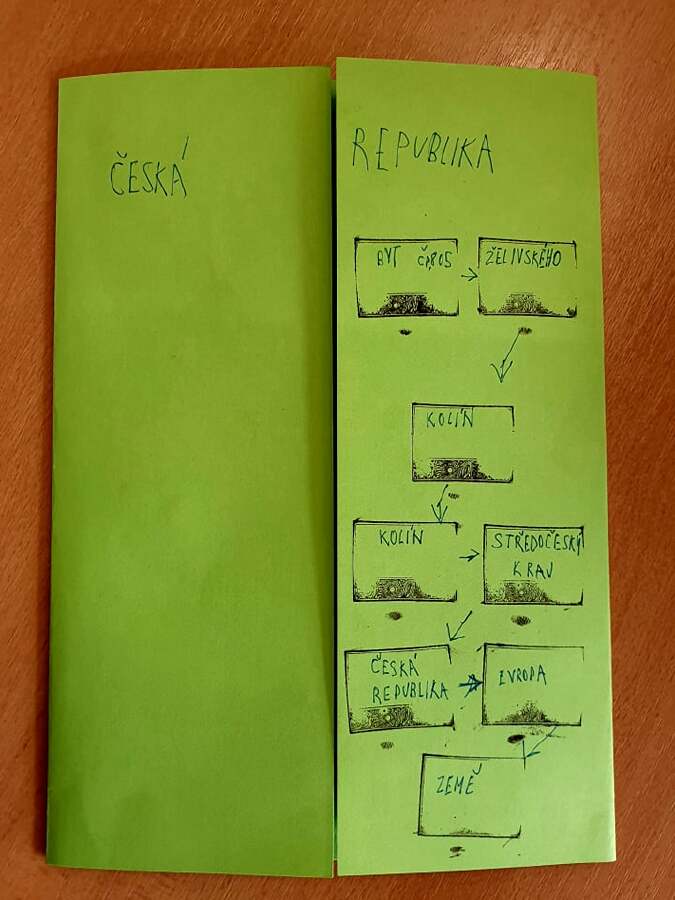 ČESKÁ REPUBLIKA
BYT ŽELIVSKÉHO
KOLÍN
KOLÍN STŘEDOČESKÝ
KRAJ
ČESKÁ EVROPA
REPUBLIKA
ZEMĚ